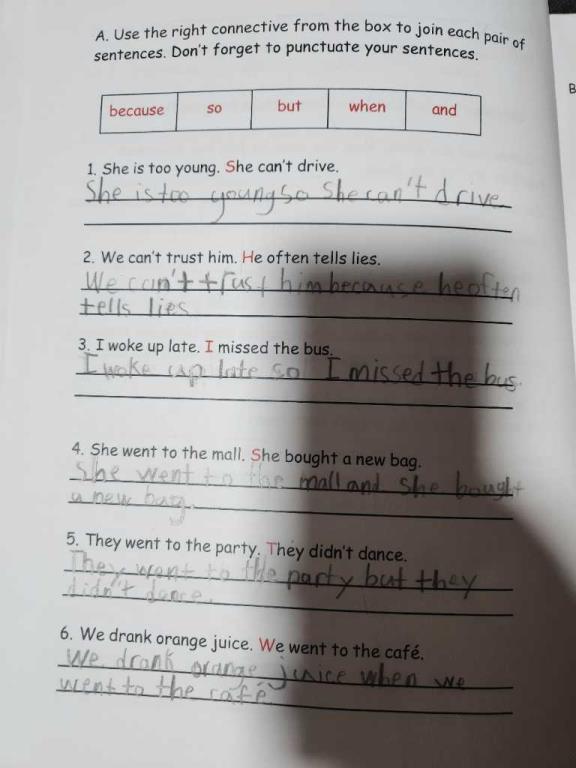 A. Use the right connective from the box to join each pair of
sentences. Don't forget to punctuate your sentences.
because so but when and
1. She is too young. She can't drive.
She is too young so she can't drive
2. We can't trust him. He often tells lies.
We can't trust him because he often
tells lies
3. I woke up late. I missed the bus.
I woke up late so I missed the bus.
4. She went to the mall. She bought a new bag.
She went to the mall and she bought
a new bag.
5. They went to the party. They didn't dance.
They went to the party but they
didn't dance.
6. We drank orange juice. We went to the café.
We drank orange juice when we
went to the café.
B